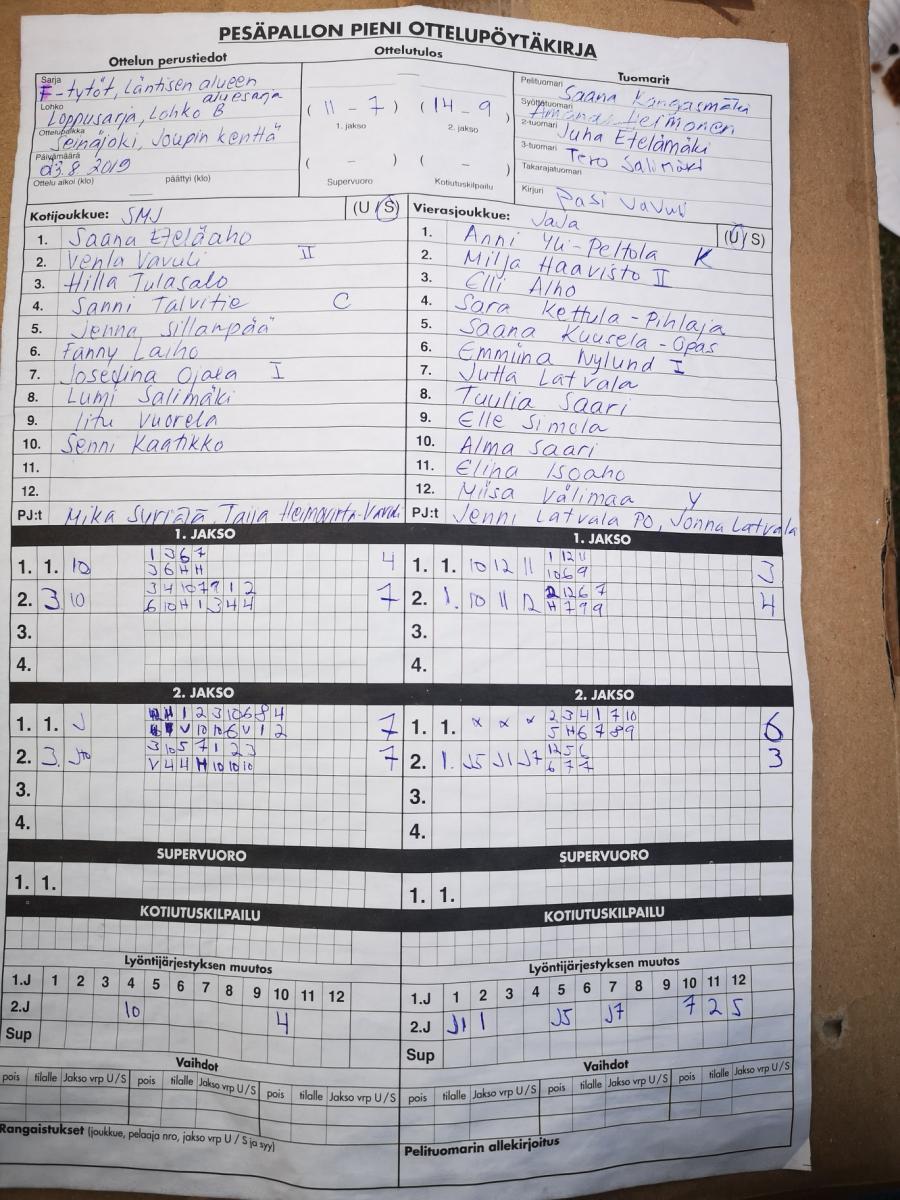 PESÄPALLON PIENI OTTELUPÖYTÄKIRJA
Ottelun perustiedot
Ottelutulos
Tuomarit
Sarja
F-tytöt, Läntisen alueen
aluesarja
Lohko
Loppusarja, Lohko B
Ottelupaikka
Seinäjoki, Joupin kenttä
Päivämäärä
03.8 2019
Ottelu alkoi (klo) päättyi (klo)
( 11 - 7 ) ( 14 - 9 )
1. jakso 2. jakso
( - ) ( - )
Supervuoro Kotiutuskilpailu
Pelituomari Saana Kangasmäki
Syöttötuomari Leimonen
2-tuomari Juha Etelämäki
3-tuomari Tero Salimäki
Takarajatuomari
Kirjuri Pasi Vavuli
Kotijoukkue: SMJ (U / S)
1. Saana Eteläaho
2. Venla Vavuli II
3. Hilla Tulasalo
4. Sanni Talvitie C
5. Jenna Sillanpää
6. Fanny Laiho
7. Josefina Ojala I
8. Lumi Salimäki
9. Iitu Vuorela
10. Senni Kaatikko
11.
12.
PJ:t Mika Syrjälä Taija
Vierasjoukkue: JaJa (U / S)
1. Anni Yli-Peltola K
2. Milja Haavisto II
3. Elli Alho
4. Sara Kettula-Pihlaja
5. Saana Kuusela-Opas
6. Emmiina Nylund I
7. Jutta Latvala
8. Tuulia Saari
9. Elle Simola
10. Alma Saari
11. Elina Isoaho
12. Miisa Välimaa Y
PJ:t Jenni Latvala PO, Jonna Latvala
1. JAKSO
1. 1. 10 1 3 6 7 4
3 6 H H
2. 3 10 3 4 10 7 9 1 2 7
6 10 H 1 3 4 4
3.
4.
1. JAKSO
1. 1. 10 12 11 1 12 11 3
10 6 9
2. 1. 10 11 12 2 12 6 7 4
H 7 9 9
3.
4.
2. JAKSO
1. 1. J H 1 2 3 10 6 8 4 7
V 10 10 6 V 1 2
2. 3. J10 3 10 5 7 1 2 3 7
V 4 4 H 10 10 10
3.
4.
2. JAKSO
1. 1. x x x 2 3 4 1 7 10 6
5 H 6 7 8 9
2. 1. J5 J1 J7 12 5 6 3
6 7 7
3.
4.
SUPERVUORO
1. 1.
SUPERVUORO
1. 1.
KOTIUTUSKILPAILU
KOTIUTUSKILPAILU
Lyöntijärjestyksen muutos
1.J 1 2 3 4 5 6 7 8 9 10 11 12
2.J 10 4
Sup
Lyöntijärjestyksen muutos
1.J 1 2 3 4 5 6 7 8 9 10 11 12
2.J J1 1 J5 J7 7 2 5
Sup
Vaihdot
pois tilalle Jakso vrp U / S pois tilalle Jakso vrp U / S pois tilalle Jakso vrp U / S
Vaihdot
pois tilalle Jakso vrp U / S pois tilalle Jakso vrp U / S pois tilalle Jakso vrp U / S
Rangaistukset (joukkue, pelaaja nro, jakso vrp U / S ja syy)
Pelituomarin allekirjoitus